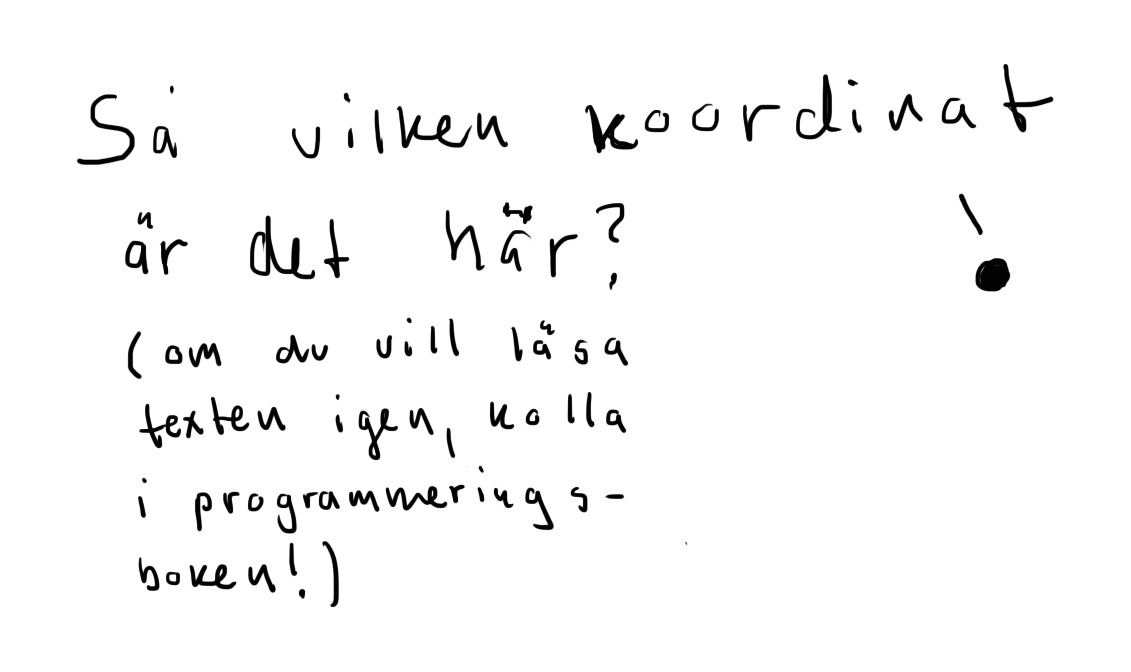 Så vilken koordinat
är det här?
(om du vill läsa
texten igen, kolla
i programmerings-
boken!)